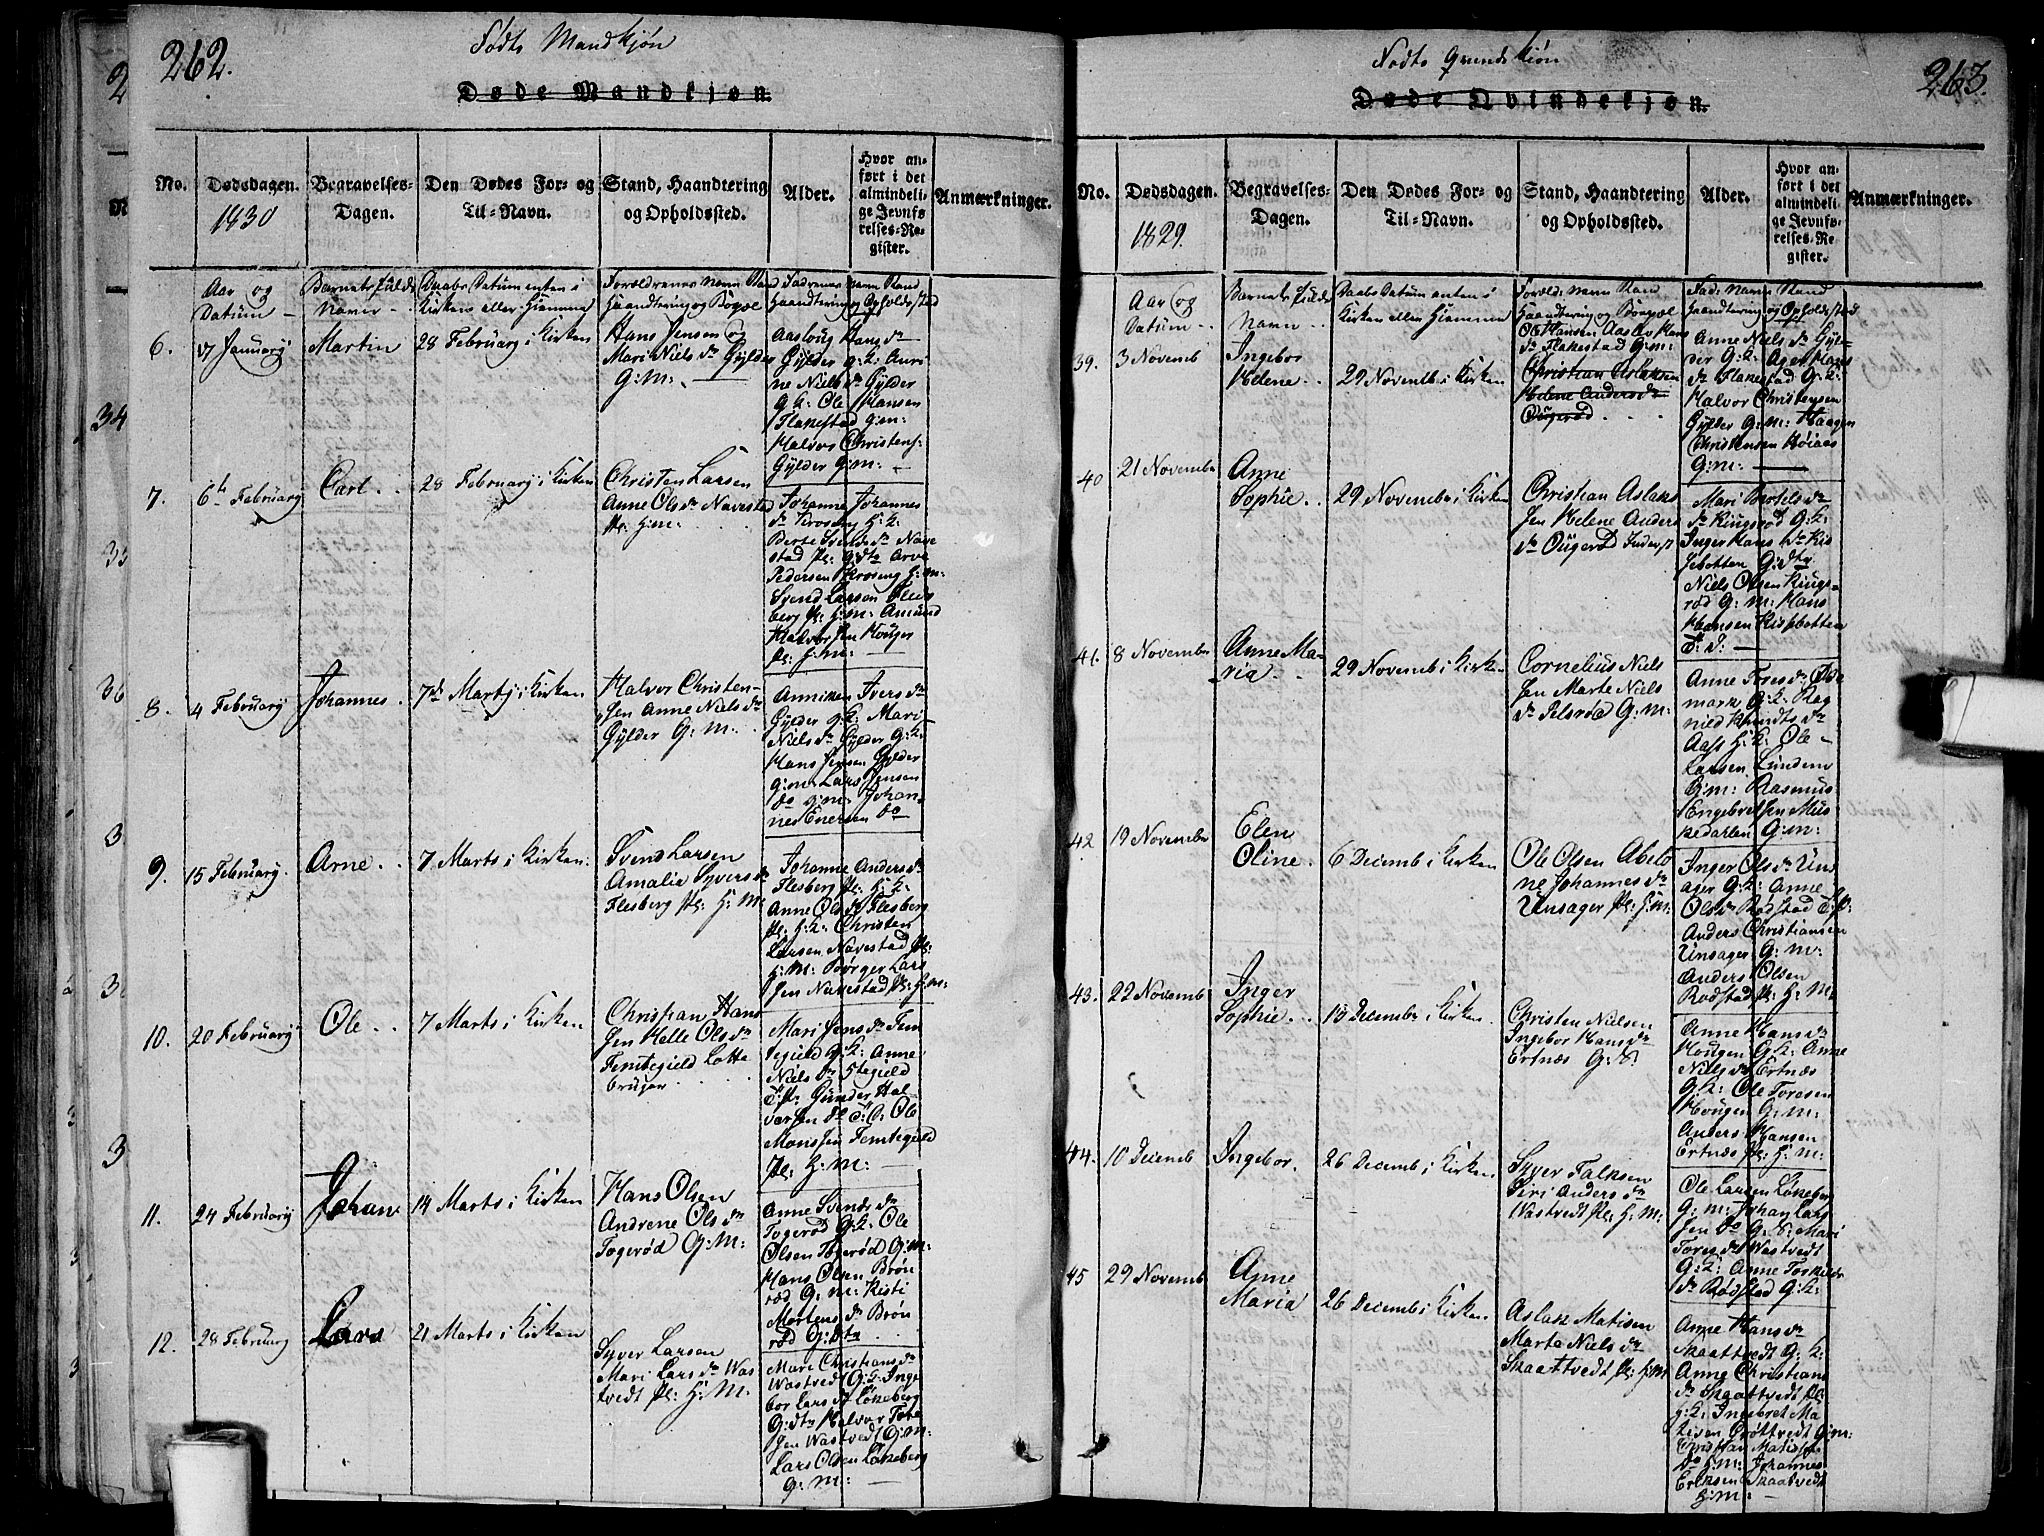 262.
Fødte Mandkjøn
Døde Mandkjøn.
No.
Dødsdagen.
1830
Begravelses-
Dagen.
Den Dødes For- og
Til-Navn.
Stand, Haandtering
og Opholdssted.
Alder.
Hvor an-
ført i det
almindeli-
ge Jevnfø
relses-Re-
gister.
Anmærkninger.
Aar og
Datum
Barnets fulde
Navn
Daabs Datum enten i
Kirken eller Hiemme
Forældrenes Navn Stand
Haandtering og Bopæl
Fadrenes Navn Stand
Haandtering og Opholdssted
6.
17 Januarj
Martin
28 Februarj i Kirken
Hans Jensen og
Mari Niels dr Gylder
G: M:
Aaslaug Hans dr
Gylder g: K:
ne Niels dr Gylder
g K: Ole Hansen
Flakestad g: m:
Halvor Christens:
Gylder G: m:
7.
6te Februarj
Carl
28 Februarj i Kirken
Christen Larsen
Anne Ols dr Navestad
pl: H: m:
Johanne Johannes
dr Kroseng H: K:
Berte Svends dr Nave
stad pl: g: dtr Arve
Pedersen Kroseng H: m:
Svend Larsen Fles
berg pl: H: m: Amund
Halvorsen Houger
pl: H: m:
8.
4 Februarj
Johannes
7de Martj i Kirken
Halvor Christen-
sen Anne Niels dr
Gylder G: M:
Anniken Ivers dr
Gylder g: K: Mari
Niels dr Gylder G: K:
Hans Jensen Gylder
g: m: Lars Jensen
do g: m: Johan-
nes Enersen do
9.
15 Februarj
Arne
7 Marts i Kirken
Svend Larsen
Amalia Syvers dr
Flesberg pl: H: M:
Johanne Anders dr
Flesberg pl: H: K:
Anne Ols dr Flesberg
pl: H: K: Christen
Larsen Navestad pl:
H: M: Børger Lars
sen Navestad pl: H: m:
10.
20 Februarj
Ole
7 Marts i Kirken
Christian Hans
sen Helle Ols dr
Femtegield Lotte
bruger
Mari Jens dr Fem
tegield G: K: Anne
Niels dr Stegield
Gunder Hal
vorsen do Ole
Monssen Femtegield
pl: H: M:
11.
24 Februarj
Johan
14 Marts i Kirken
Hans Olsen
Andrene Ols dr
Togerød G: M:
Anne Svends dr
Togerød G: K: Ole
Olsen Togerød G: m:
Hans Olsen Brøn
rød G: m: Kisti
Mortens dr Brøn
rød G: dtr
12.
28 Februarj
Lars
21 Marts i Kirken
Syver Larsen
Mari Lars dr Was
tvedt pl: H: M:
Mari Christians dr
Wastvedt G: K: Inge
bor Lars dr Løkeberg
G: dtr Halvor Tore
sen Wastvedt G: m:
Lars Olsen Løkeberg
g: m:
263.
Fødte Qvindekiøn
Døde Qvindekjøn.
No.
Dødsdagen.
1829.
Begravelses-
Dagen.
Den Dødes For- og
Til-Navn.
Stand, Haandtering
og Opholdssted.
Alder.
Hvor an-
ført i det
almindeli
ge Jevnfø-
relses-Re
gister.
Anmærkninger.
Aar og
Datum
Barnets fulde
Navn
Daabs Datum enten i
Kirken eller Hiemme
Foræld: Navn Stand
Haandtering og Bopæl
Fad: Navn Stand
Haandtering og Opholdsstad
39.
3 Novemb
Ingebor
Helene
29 Novemb i Kirken
Ole Hansen Aaslov Hans
dr Flakestad G: m:
Christian Aslaksen
Helene Anders dr
Ougerød
Anne Niels dr Gyl-
der G: K: Ager Hans
dr Flakestad G: K:
Halvor Christensen
Gylder G: m: Haagen
Christensen Røiaas
G: m:
40
21 Novembr
Anne
Sophie
29 Novembr i Kirken
Christian Aslaks
sen Helene Anders
dr Ougerød Inderst
Mari Bertels dr
dr Ringsrød G: K:
Inger Hans dr Ris
sebotten G: dtr
Niels Olsen Rings-
rød G: m: Hans
Hansen Rissebotten
41.
8 Novembr
Anne Ma-
ria
29 Novemb i Kirken
Cornelius Niels
sen Marte Niels
dr Pelsrød G: M:
Anne Tores dr Øde
mark G: K: Rag
nild Knudts dr
Aass H: K: Ole
Larsen Lunden
G: m: Rasmus
Engebretsen Mus
kedalen G: m:
42
19 Novembr
Elen
Oline
6 Decemb i Kirken
Ole Olsen Abelo
ne Johannes dr
Unsager pl: H: M:
Inger Ols dr Uns
ager G: K: Anne
Ols dr Rødstad
Anders Christiansen
Unsager G: m:
Anders Olsen
Rødstad pl: H: M:
43.
22 Novemb
Inger
Sophie
13 Decembr i Kirken
Christen Nielsen
Ingebor Hans dr
Ertnæs G: S:
Anne Hans dr
Hougen G: K: Anne
Niels dr Ertnæs
G: K: Ole Toresen
Hougen G: M:
Anders Hansen
Ertnæs pl: H: M:
44.
10 Decemb
Ingebor
26 Decemb i Kirken
Syver Falksen
Siri Anders dr
Wastvedt pl: H: M:
Ole Larsen Løkeberg
G: m: Johan Lars
sen do G: S: Mari
Tores dr Wastvedt
G: K: Anne Torkilds
dr Rødstad G: K:
45
29 Novemb
Anne
Maria
26 Decemb i Kirken
Aslak Matisen
Marte Niels dr
Skaattvedt pl: H: M:
Anne Hans dr
Skaattvedt G: K:
Anne Christians
dr Skaattvedt pl:
H: K: Ingebret Ma
tisen Brøttvedt G: m:
Christian Matisen
do H: m: Johannes
Eriksen Skaatvedt
H: m: